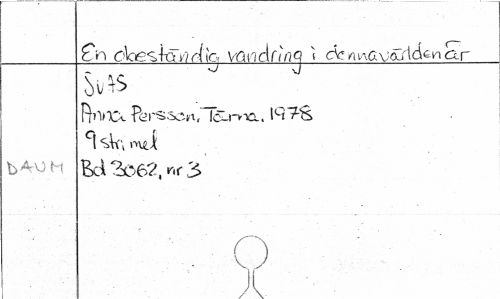 En obeständig vandring i denna världen är
SvAS
Anna Persson, Tärna, 1978
9 str, mel
DAUM Bd 3062, nr 3